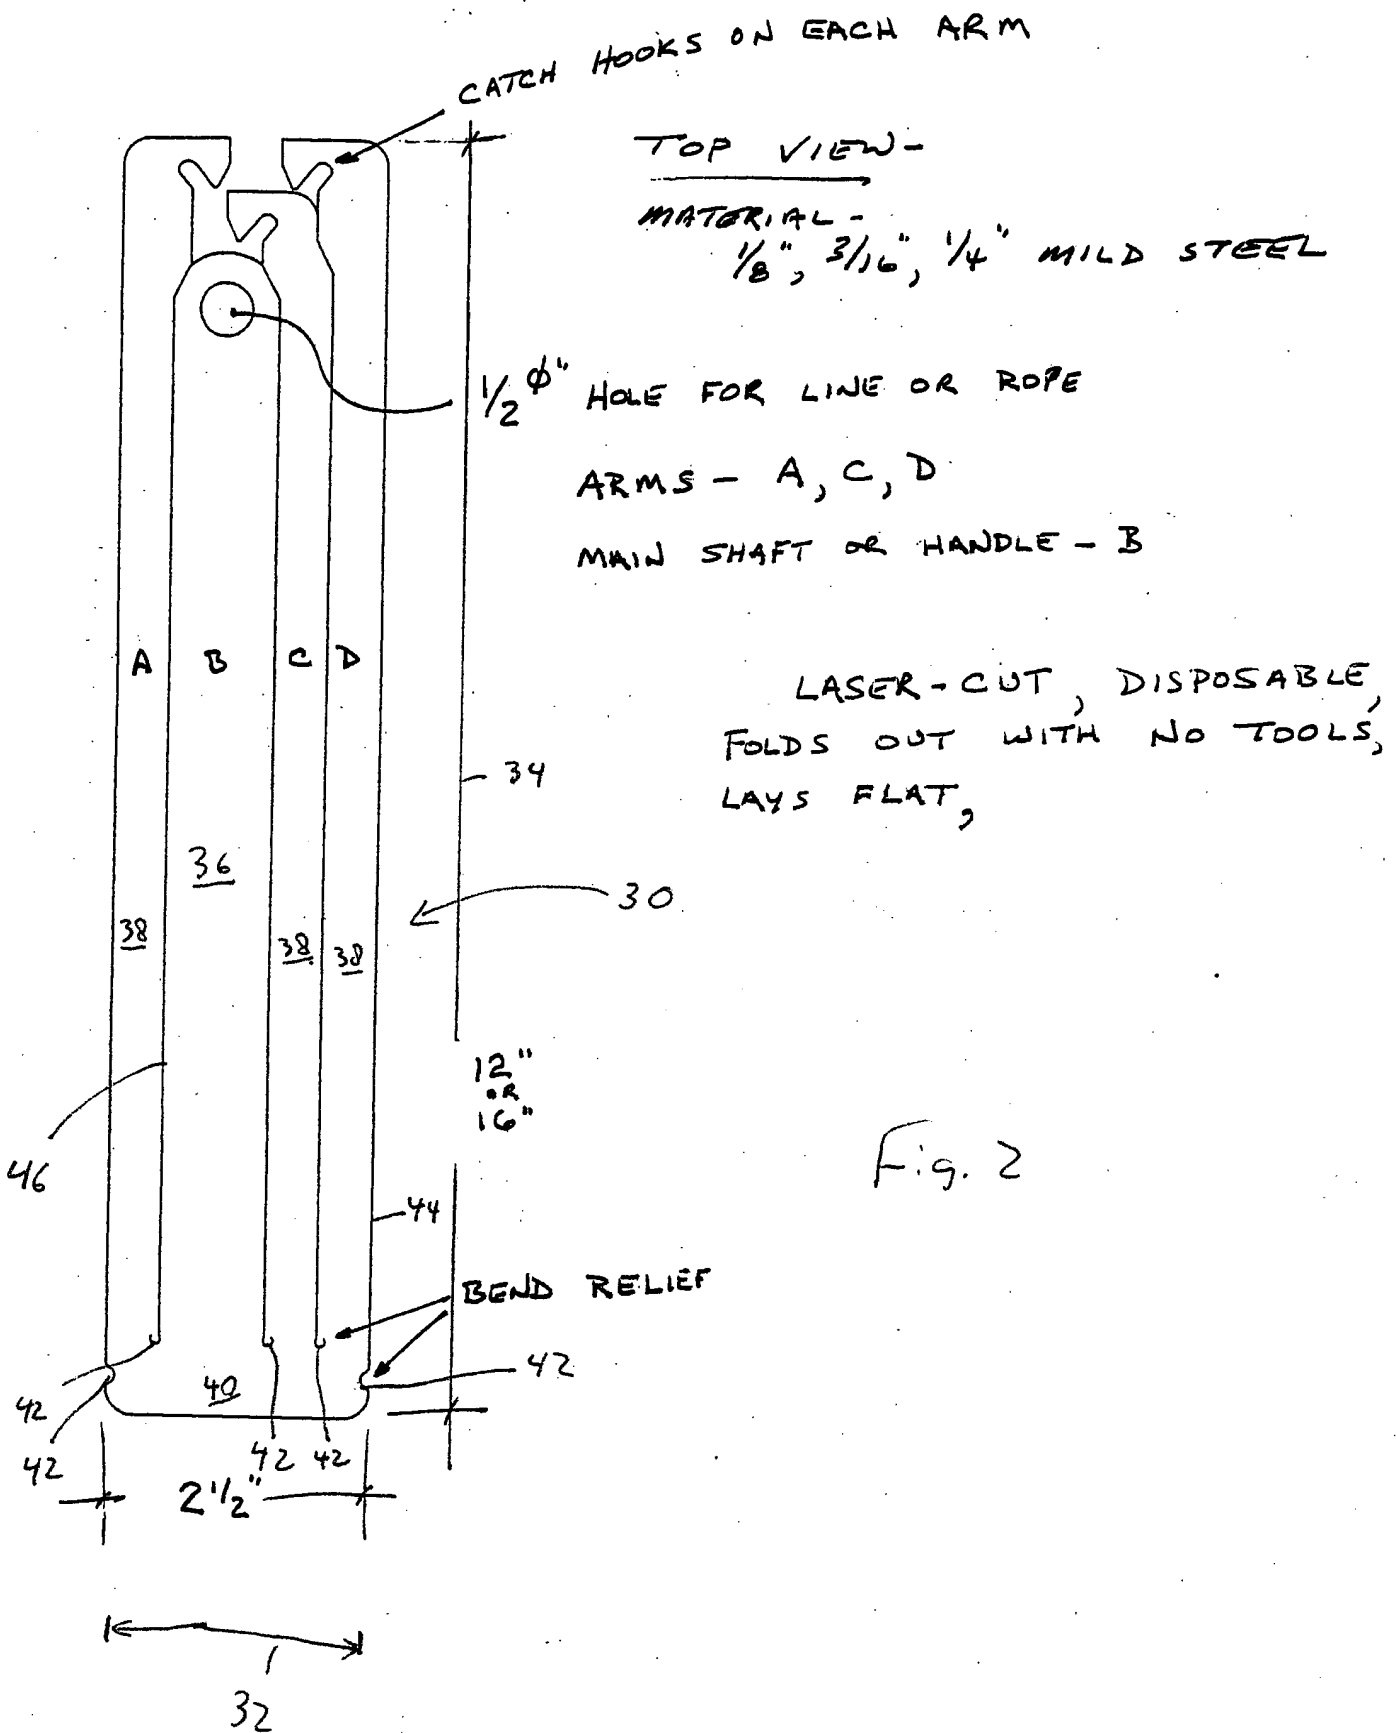 CATCH HOOKS ON EACH ARM
TOP VIEW-
MATERIAL-
1/8", 3/16", 1/4" MILD STEEL
1/2 ϕ" HOLE FOR LINE OR ROPE
ARMS - A, C, D
MAIN SHAFT OR HANDLE - B
A B C D
LASER-CUT, DISPOSABLE,
FOLDS OUT WITH NO TOOLS,
LAYS FLAT,
34
36
30
38 38 38
12"
OR
16"
46
Fig. 2
44
BEND RELIEF
42
40
42
42
42 42
2 1/2"
32